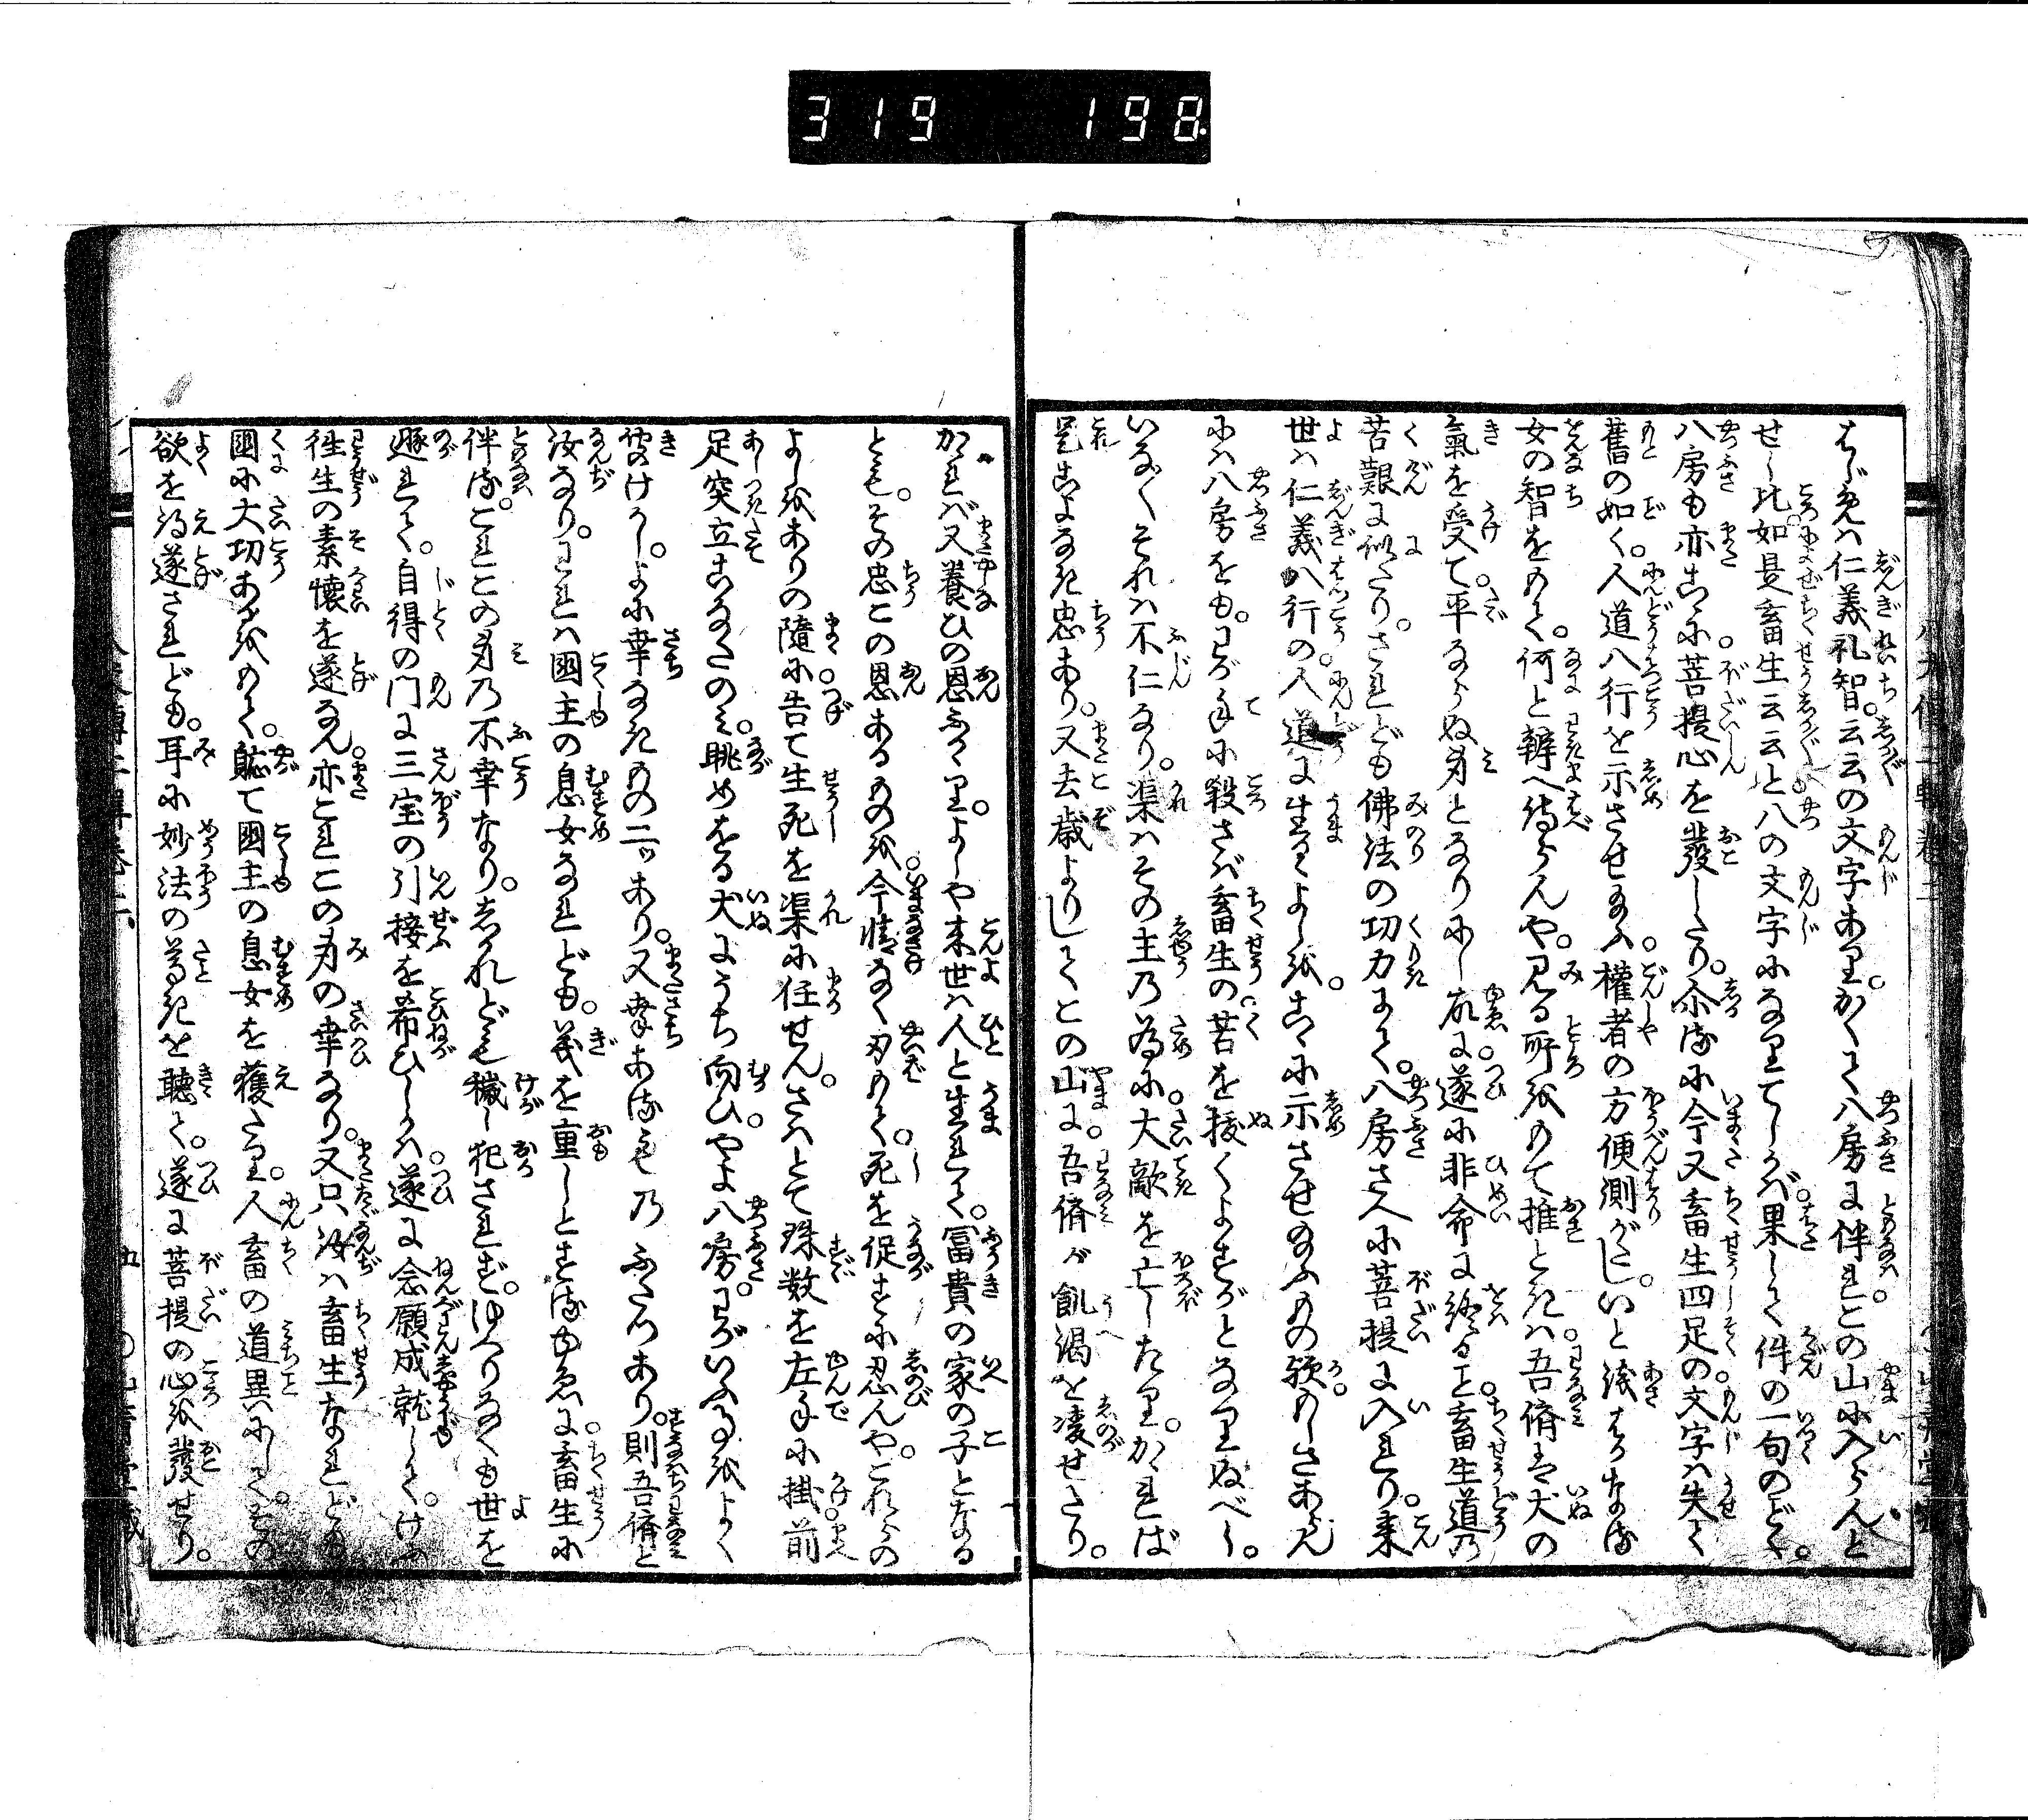 はじめハ仁義礼智。云云の文字あり。かくて八房に伴れこの山に入らんと
せし比。如是畜生云云と八の文字になりてしかバ。果して件の一句のごとく。
八房も亦こゝに。菩提心を發したり。尓るに今又畜生四足の。文字ハ失て
舊の如く。人道八行を示させ給ふ。權者の方便測がたし。いと淺はかなる
女の智をもて。何と辨へ侍らんや。見る所をもて推ときハ。吾儕は犬の
氣を受て。平ならぬ身となりにし故に。遂に非命に終るも。畜生道の
苦艱に似たり。されども佛法の功力にて。八房さへに菩提に入れり。来
世ハ仁義八行の。人道に生るゝよしを。こゝに示させ給ふもの欤。もしさあらん
にハ八房をも。わが手に殺さバ畜生の。苦を援くよすがとなりぬべし。
いな〳〵それハ不仁なり。渠ハその主の為に。大敵を亡したり。かゝれば
是こよなき忠あり。又去歳よりしてこの山に。吾儕が飢渇を凌せたり。
かゝれバ又養ひの恩ふかし。よしや来世ハ人と生れて。冨貴の家の子となる
とも。その忠この恩あるものを。今情なく刃もて。死を促すに忍んや。これらの
よしをありの隨に。告て生死を渠に任せん。さハとて珠数を左手に掛。前
足突立こなたのみ。眺めをる犬にうち向ひ。やよ八房。わがいふ事をよく
きけかし。よに幸なきもの二ッあり。又幸あるもの ふたつあり。則吾儕と
汝なり。われハ國主の息女なれども。義を重しとするゆゑに。畜生に
伴る。これこの身の不幸なり。しかれども穢し犯されず。ゆくりなくも世を
遯れて。自得の門に三宝の引接を希ひしかハ。遂に念願成就して。けふ
往生の素懐を遂なん。亦これこの身の幸なり。又只汝ハ畜生なれども
國に大功あるをもて。國主の息女を獲たり。人畜の道異にして。その
欲を得遂されども。耳に妙法の尊きを聽て。遂に菩提の心を發せり。
319 198